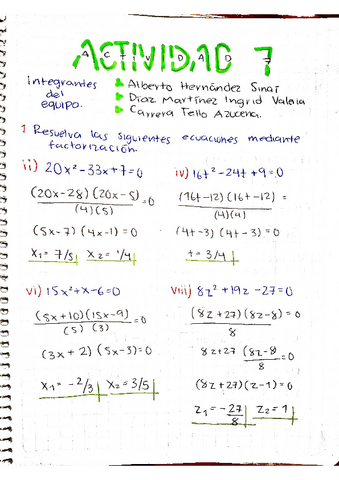 ACTIVIDAD 7
Integrantes del equipo.
Alberto Hernández Sinai
Díaz Martínez Ingrid Valeria
Carrera Tello Azucena.
1 Resuelva las siguientes ecuaciones mediante
factorización.
ii) 20x²-33x+7=0
(20x-28)(20x-5)/(4)(5) =0
(5x-7)(4x-1)=0
x₁= 7/5 x₂= 1/4
iv) 16t²-24t+9=0
(16t-12)(16t-12)/(4)(4) =
(4t-3)(4t-3)=0
t=3/4
vi) 15x²+x-6=0
(5x+10)(15x-9)/(5)(3) =0
(3x+2)(5x-3)=0
x₁=-2/3 x₂=3/5
viii) 8z²+19z-27=0
(8z+27)(8z-8)/8 =0
8z+27 (8z-8)/8 =0
(8z+27)(z-1)=0
z₁=-27/8 z₂=1